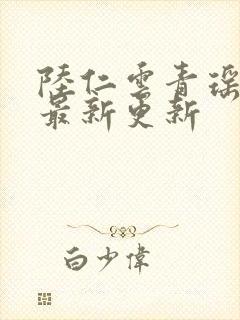 陸仁雲青瑶
最新更新
白少偉